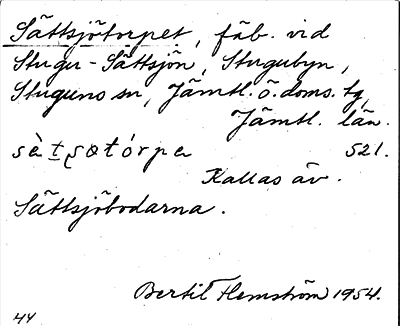 Sättsjötorpet, fäb. vid
Stugu-Sättsjön, Stugubyn,
Stuguns sn, Jämtl. ö. doms. tg,
Jämtl. län.
sὲtʂøtórpe 521.
Kallas äv.
Sättsjöbodarna.
Bertil Flemström 1954.
44